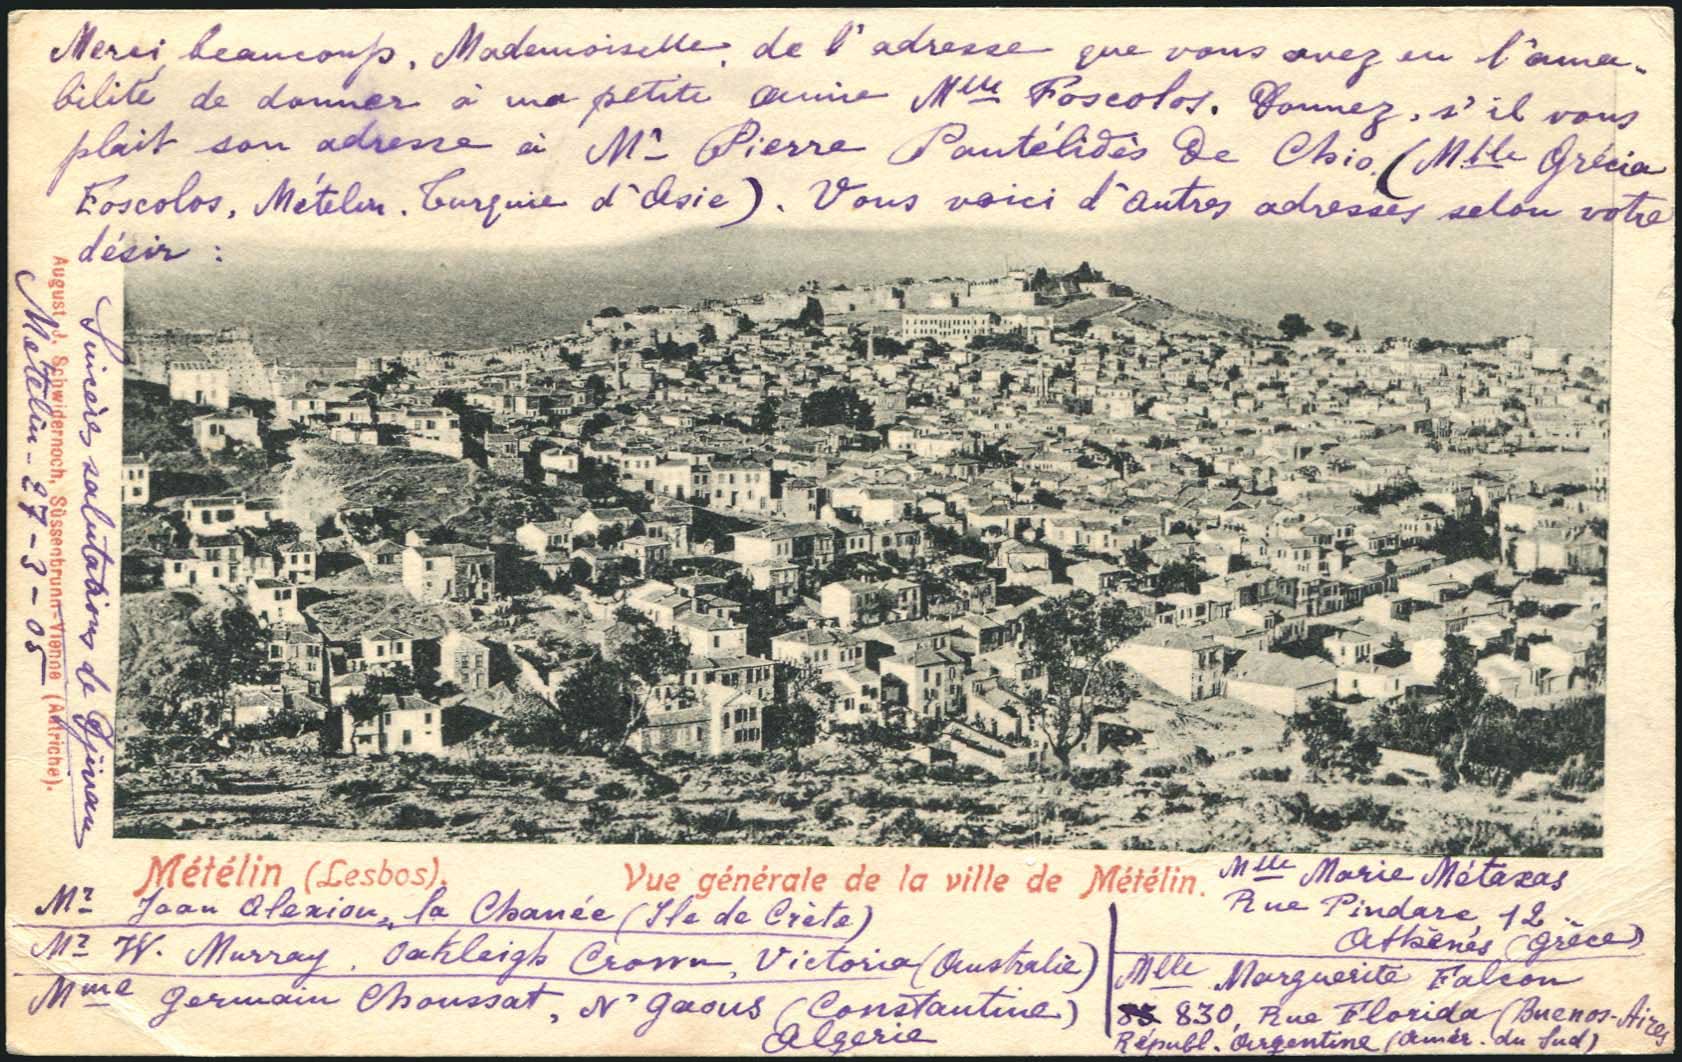 Merci beaucoup, Mademoiselle, de l'adresse que vous avez eu l'ama-
bilité de donner à ma petite amie Mlle Foscolos. Donnez, s'il vous
plait son adresse à Mr Pierre Pantélidès De Chio. (Mlle Grécia
Foscolos, Métélin. Turquie d'Asie). Vous voici d'autres adresses selon votre
désir :
Sincères salutations de
Métélin - 27-3-05
August J. Schwidernoch, Süssenbrunn-Vienne (Autriche).
Métélin (Lesbos).
Vue générale de la ville de Métélin.
Mr Jean Alexiou, la Chanée (Ile de Crète)
Mr W. Murray, Oakleigh Crown, Victoria (Australie)
Mme Germain Choussat, N' Gaous (Constantine)
Algerie
Mlle Marie Métaxas
Rue Pindare 12
Athènes (Grèce)
Mlle Marguerite Falcon
830, Rue Florida (Buenos-Aires
Républ. Argentine (Amér. du Sud)